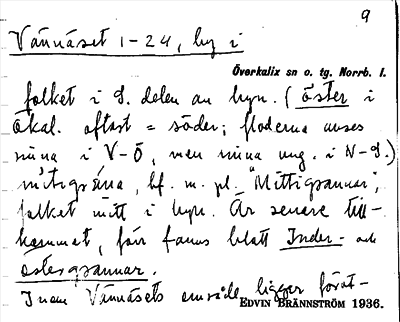 9
Vännäset 1-24, by i
Överkalix sn o. tg. Norrb. l.
folket i S. delen av byn. (öster i
Ökal. oftast = söder; floderna anses
rinna i V-Ö, men rinna ung. i N-S.)
mitigränna, bf. m. pl. "Mittigrannar",
folket mitt i byn. Är senare till-
kommet, förr fanns blott Inder- och
östergrannar.
Inom Vännäsets område ligger föröt-
EDVIN BRÄNNSTRÖM 1936.